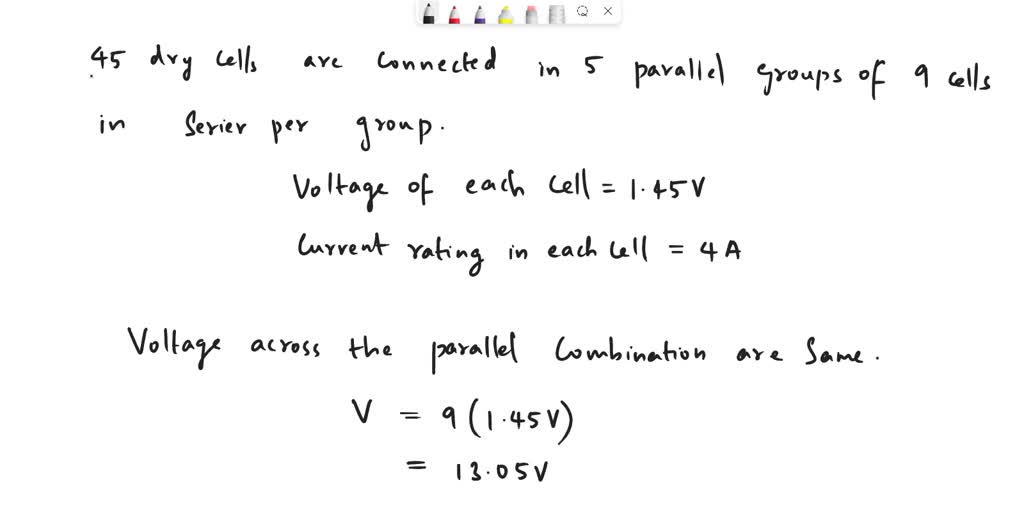 45 dry cells are connected in 5 parallel groups of 9 cells
in Serier per group.
Voltage of each cell = 1.45V
Current rating in each cell = 4A
Voltage across the parallel Combination are Same.
V = 9(1.45V)
= 13.05V